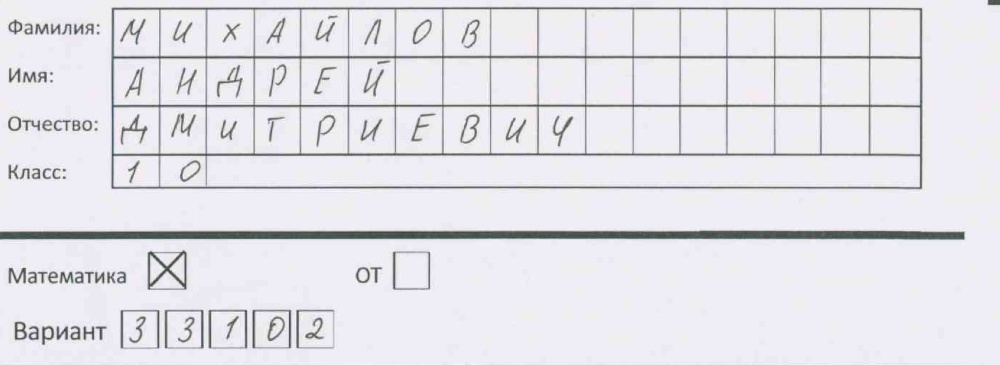 Фамилия: МИХАЙЛОВ
Имя: АНДРЕЙ
Отчество: ДМИТРИЕВИЧ
Класс: 10
Математика ☒ ОТ ☐
Вариант 33102